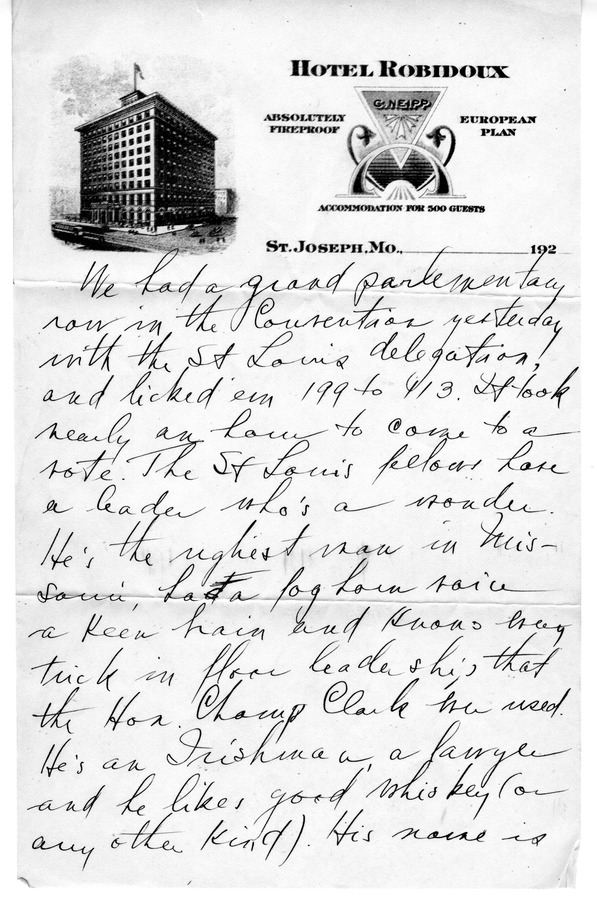 HOTEL ROBIDOUX
G. NEIPP
ABSOLUTELY
FIREPROOF
EUROPEAN
PLAN
ACCOMMODATION FOR 500 GUESTS
ST. JOSEPH, MO., 192
We had a grand parlementary
row in the Convention yesterday
with the St Louis delegation,
and licked 'em 199 to 413. It took
nearly an hour to come to a
vote. The St Louis fellows have
a leader who's a wonder.
He's the ugliest man in Mis-
souri, has a fog horn voice
a keen brain and knows every
trick in floor leadership that
the Hon. Champ Clark ever used.
He's an Irishman, a lawyer
and he likes good whiskey (or
any other kind). His name is